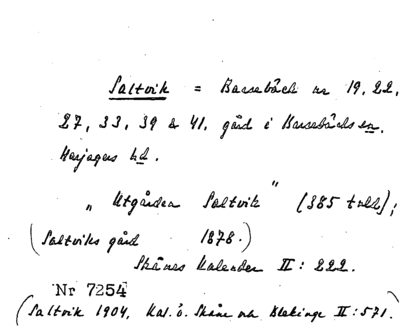 Saltvik = Barsebäck nr 19, 22,
27, 33, 39 & 41, gård i Barsebäcks sn.
Harjagers hd.
„ Utgården Saltvik " (385 tnld);
(Saltviks gård 1878.)
Skånes Kalender II: 222.
Nr 7254
(Saltvik 1904, Kal. ö. Skåne och Blekinge II: 571.